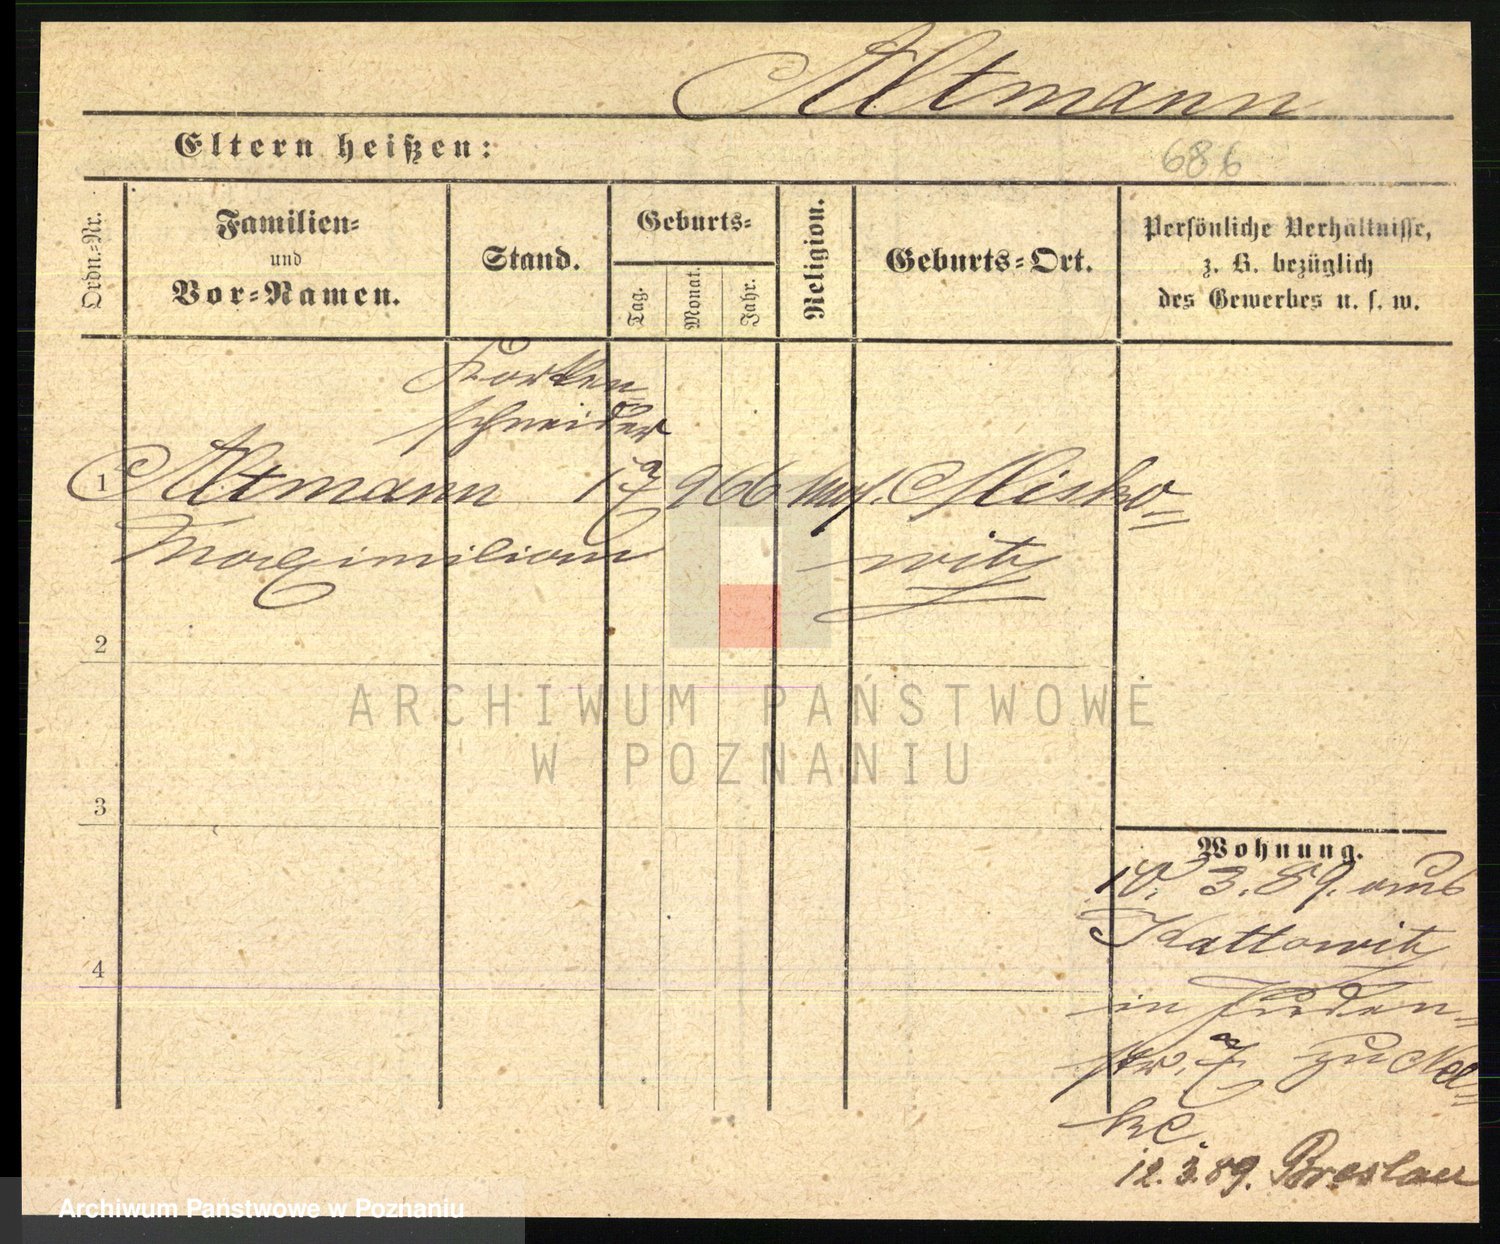 Altmann
Eltern heißen:
686
Ordn.=Nr.
Familien=
und
Vor=Namen.
Stand.
Geburts=
Tag.
Monat.
Jahr.
Religion.
Geburts=Ort.
Persönliche Verhältnisse,
z. B. bezüglich
des Gewerbes u. s. w.
Korken
schneider
1 Altmann 17 9 66 mos. Misko=
Maximilian witz
2
ARCHIWUM PAŃSTWOWE
W POZNANIU
3
Wohnung.
10. 3. 89. aus
Kattowitz
4
in Juden=
str. 7 zu
12.3.89. Breslau
Archiwum Państwowe w Poznaniu